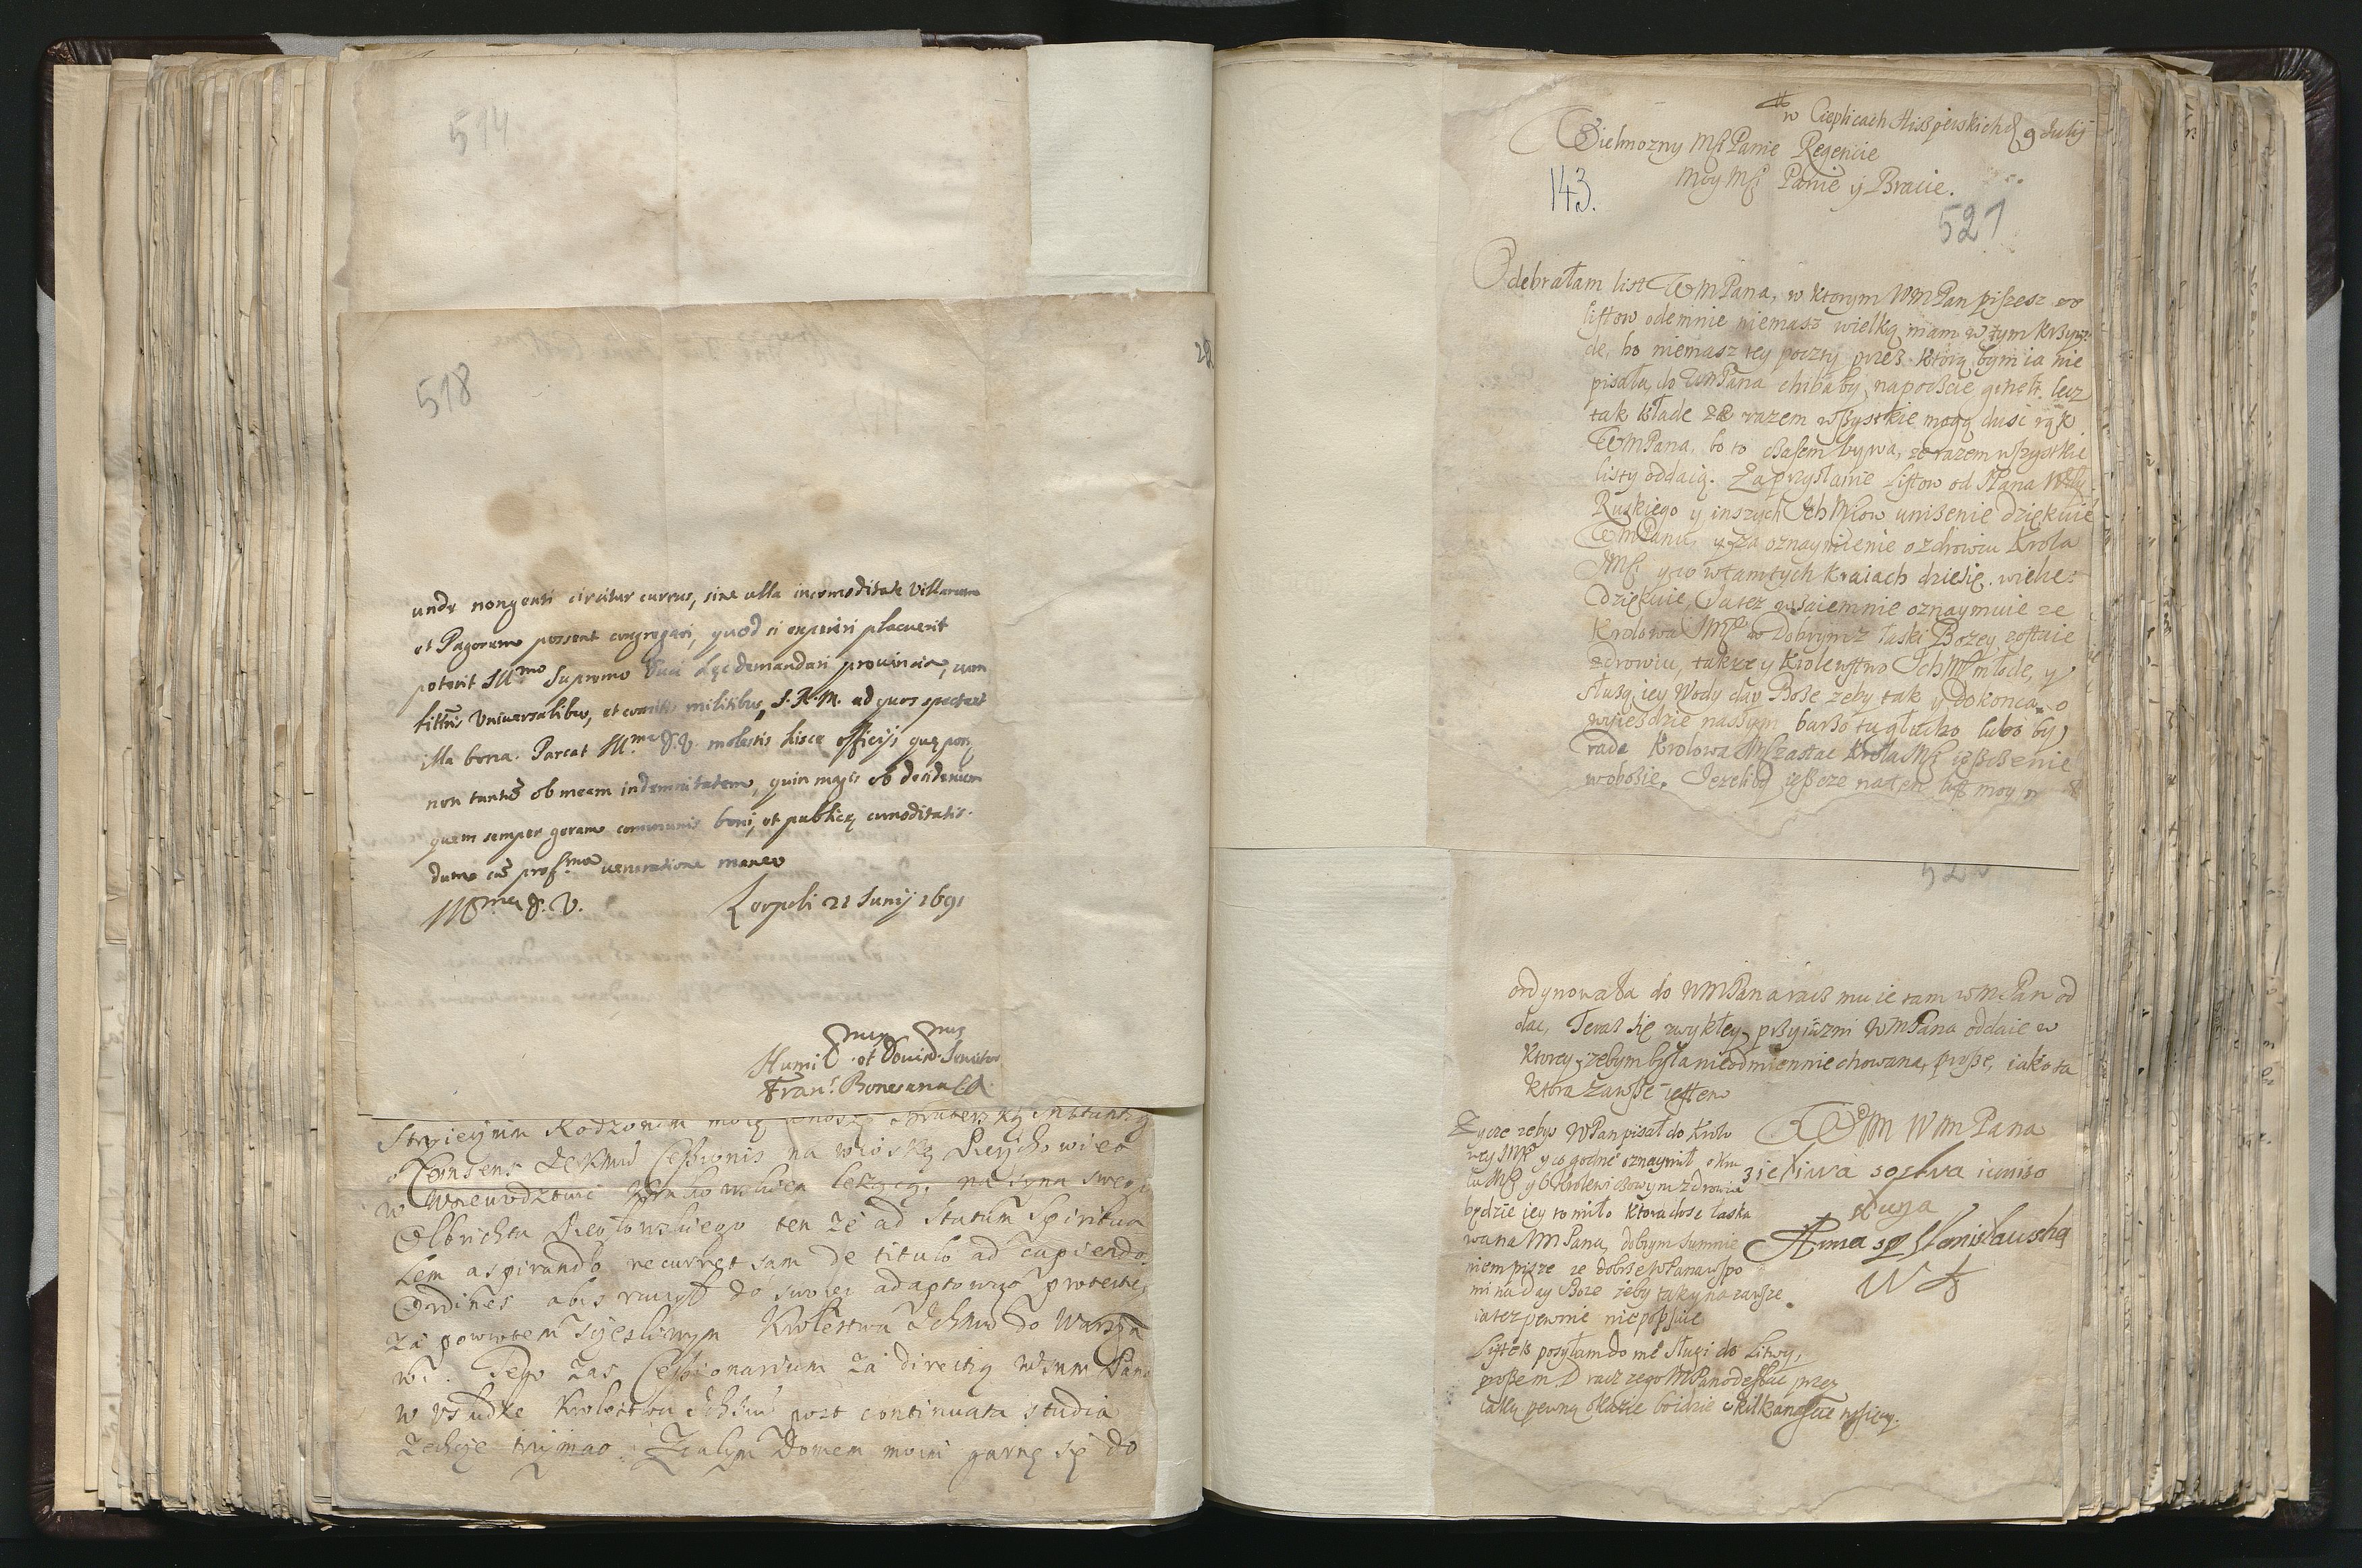 514
518
unde nongenti circiter currus, sine ulla incomoditate Villarum
et Pagorum possent congregari, quod si experiri placuerit
poterit Illmo Supremo Duci demandari provincia, cum
littris Universalibus, et militibus, S.R.M. ad quos spectant
illa bona. Parcat Illma D.V. molestis hisce officijs quę
non tantũ ob meam indemnitatem, quin magis ob desiderium
quem semper geram communis boni, et publicę comoditatis.
dum cũ profma veneratione maneo
Illmæ D.V. Leopoli 21 Junij 1691
Humil et Servitor
Fran. Bonesana C.R.
Rodzonem moię
Consens Jekmci Cessionis na wioskę
w leżącą, na syna swego
Olbrichta ten że ad Statum Spiritua
lem aspirando recurret sam de titulo ad capiendos
Ordines abis raczył do swoiey
za powrotem Krolestwa Ichmci do Warsza
wi. Tego zas Cessionarium za directią Wsmm Pana
w Krolestwa post continuata studia
zechcę trzymac. Zcałym Domem moim garnę się do
w Cieplicach 9 Julij
Wielmozny Mśi Panie Regencie
143.
Moy Mśi Panie y Bracie.
521
Odebrałam list WMPana, w ktorym WMPan piszesz ze
listow odemnie niemasz wielką mam w tym krzyw
de, bo niemasz tey poczty przez ktorą bym ia nie
pisała do WMPana chibaby na poczcie ginęły. lecz
tak kłade ze razem wszystkie mogą dusc rąk
WMPana, bo to czasem bywa, ze razem wszystkie
listy oddaią. Za przysłanie listow od JPana Wdy
Ruskiego y inszych Ich Mściow unizenie dziękuie
WMPanu, y za oznaymienie o zdrowiu Krola
JMśi y co w tamtych kraiach dzieie się. wielce
dziękuie, Ja tez wzaiemnie oznaymuie ze
Krolowa JMść w dobrym z łaski Bozey zostaie
zdrowiu, takze y Krolewstwo Ich Mść młode, y
słuzą iey Wody day Boze zeby tak y dokonca. o
wyiezdzie naszym barzo tu głucho lubo by
rada Krolowa JMść zastac Krola JMśi ieszcze nie
w obozie. Jezeliby ieszcze na ten list moy
520
ordynowała do WMPana racz mu ie tam WMPan od
dac, Teraz się zwykłey przyiazni WMPana oddaie w
ktorey zebym była nieodmiennie chowana, prosze, iako ta
ktora zawsze iestem
WM WMPana
zicliwa sostra iuniso
sługa
Anna Stanisławska
Zycze zebys WPan pisał do Krolo
wey JMśi y co godne oznaymił o Kro
lu JMśi y o Krolewiczowym zdrowiu
będzie iey to miło ktora dosc łaska
wa na WMPana, dobrym sumnie
niem pisze ze dobrze WPana wspo
mina Day Boze zeby tak y na zawsze
ia tez pewnie nie popsuie
Listek posyłam do mê sługi do Litwy,
prosze racz zego WMPan odesłac przez
iaką pewną okazie bo idzie o kilkanascie tysięcy.